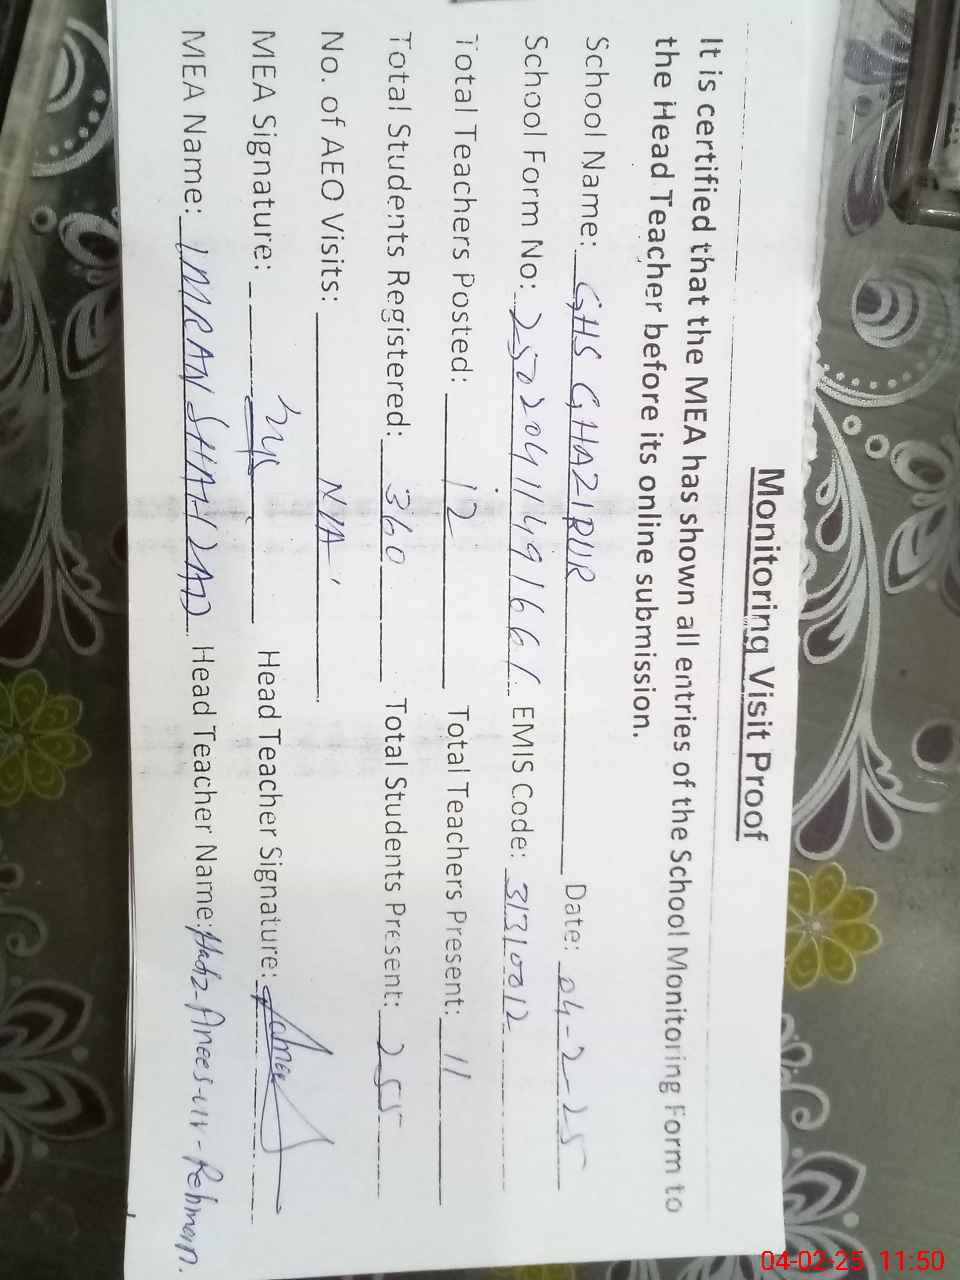 Monitoring Visit Proof
It is certified that the MEA has shown all entries of the School Monitoring Form to
the Head Teacher before its online submission.
School Name: GHS GHAZIPUR Date: 04-2-25
School Form No: 25020411491661 EMIS Code: 31310012
Total Teachers Posted: 12 Total Teachers Present: 11
Total Students Registered: 360 Total Students Present: 255
No. of AEO Visits: N/A
MEA Signature: Head Teacher Signature:
MEA Name: IMRAN SHAHZAD Head Teacher Name: Hafiz-Anees-ur-Rehman.
04-02-25 11:50